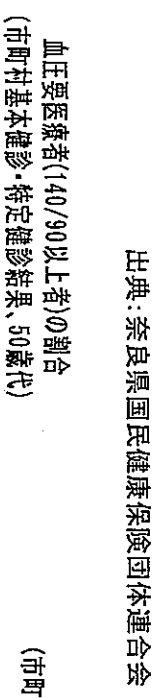 出典:奈良県国民健康保険団体連合会
血圧要医療者(140/90以上者)の割合
(市町村基本健診・特定健診結果、50歳代)
(市町